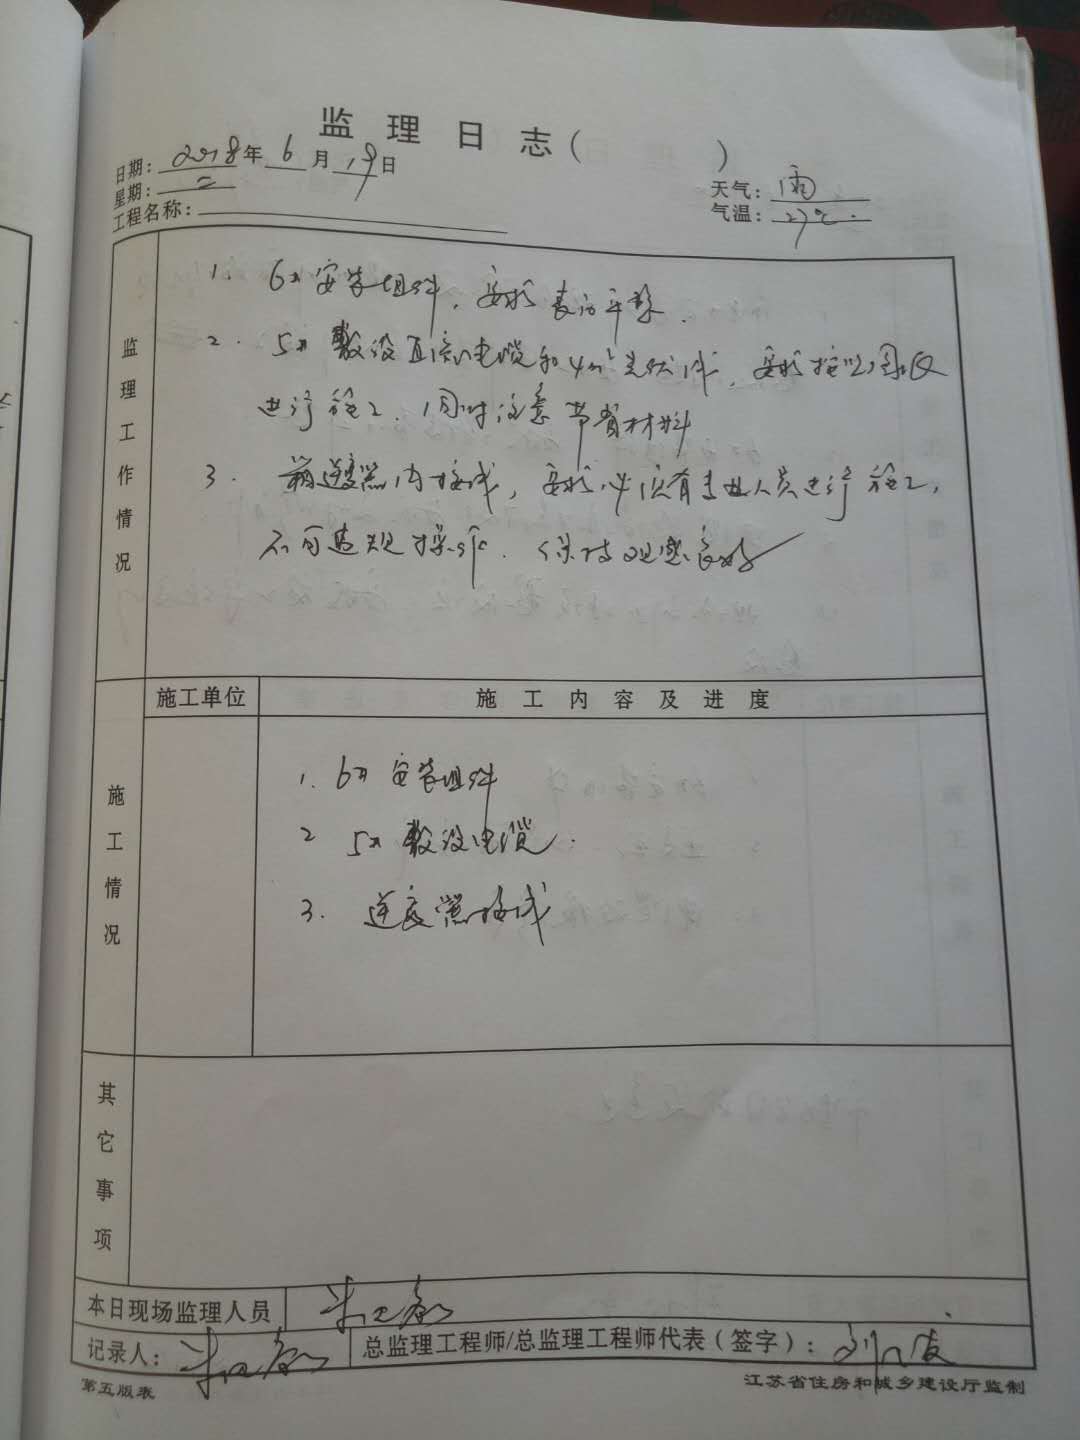 监理日志（ ）
日期：2018年6月19日
星期：二
天气：雨
工程名称：
气温：27℃.
监理工作情况
1. 6#安装组件，要求表面平整.
2. 5#敷设直流电缆和4m²光伏线，要求按照图纸
进行施工，同时注意节省材料
3. 逆变器内接线，要求必须有专业人员进行施工，
不可违规操作. 保持观感良好
施工情况
施工单位
施工内容及进度
1. 6#安装组件
2 5#敷设电缆.
3. 逆变器接线
其它事项
本日现场监理人员
记录人：
总监理工程师/总监理工程师代表（签字）：
第五版表
江苏省住房和城乡建设厅监制